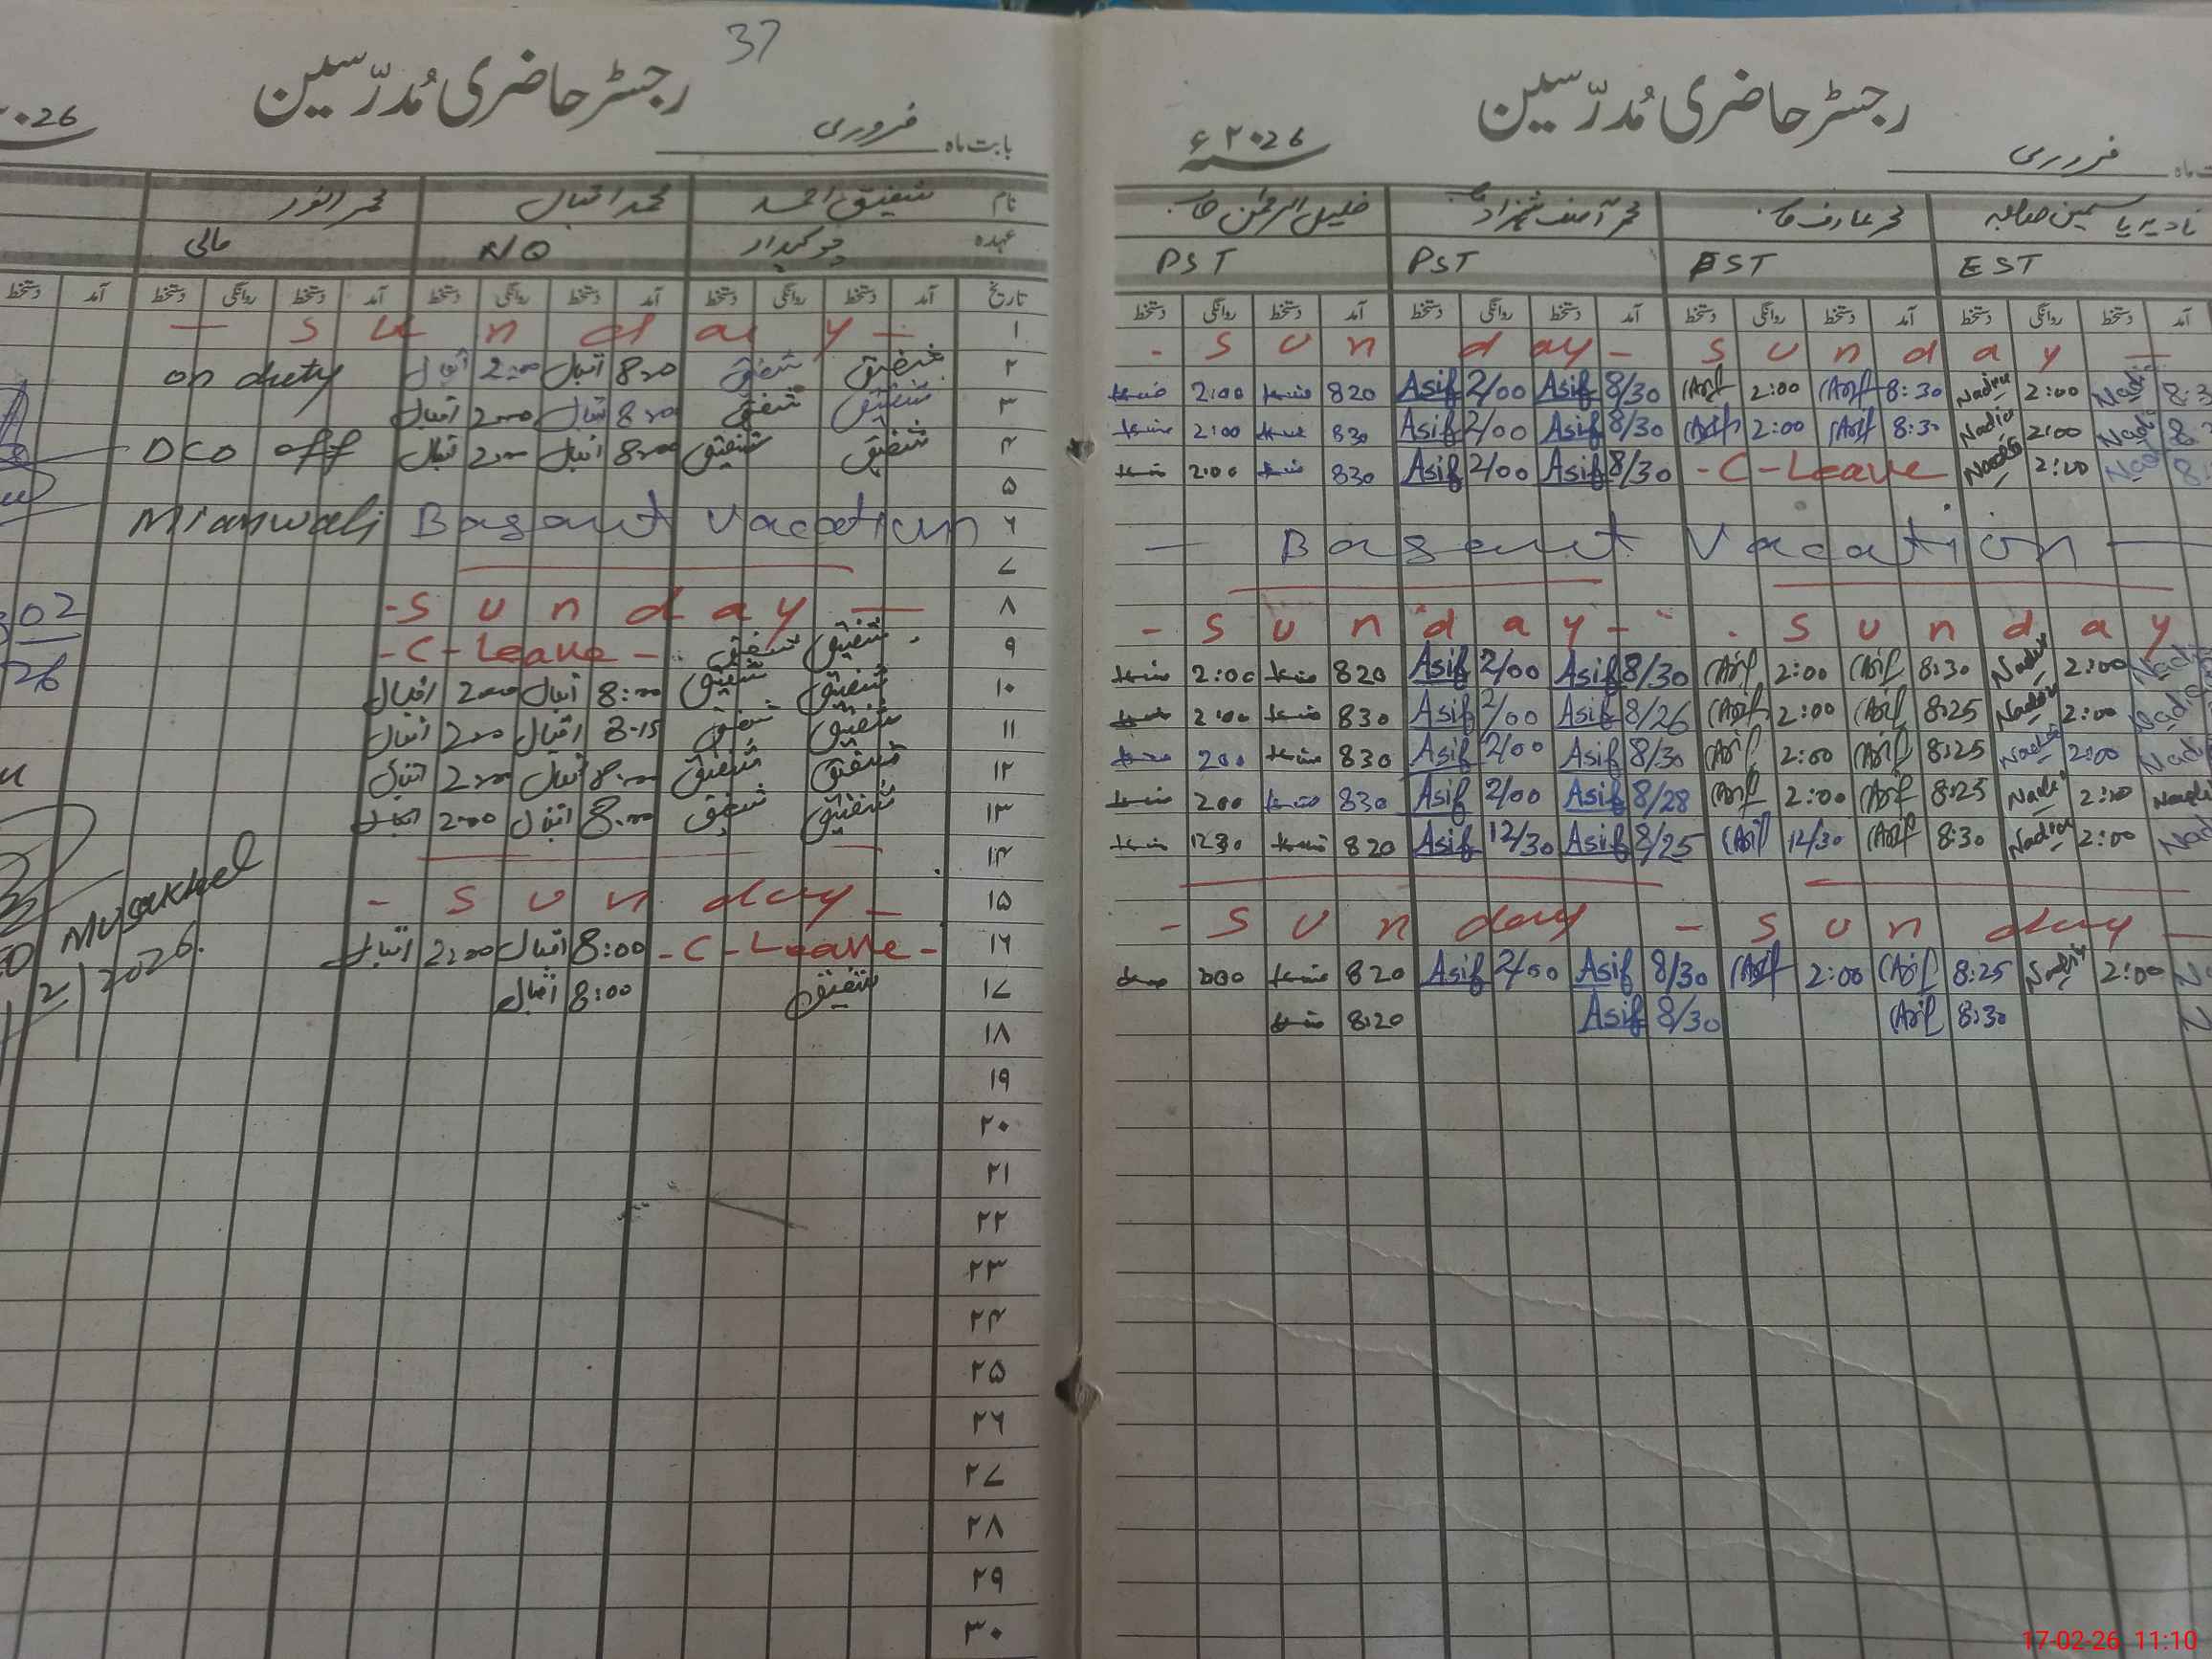 37
رجسٹر حاضری مُدرّسین
بابت ماہ فروری
نام شفیق احمد محمد اقبال محمد انور
عہدہ چوکیدار N/Q مالی
تاریخ آمد دستخط روانگی دستخط آمد دستخط روانگی دستخط آمد دستخط روانگی دستخط آمد دستخط
۱ - Sunday -
۲ شفیق شفیق 8:20 اقبال 2:00 اقبال on duty
۳ شفیق شفیق 8:20 اقبال 2:00 اقبال
۴ شفیق شفیق 8:00 اقبال 2:00 اقبال DCO off
۵
۶ Mianwali Basant Vacation
۷
۸ - Sunday -
۹ شفیق شفیق - C - Leave -
۱۰ شفیق شفیق 8:00 اقبال 2:00 اقبال
۱۱ شفیق شفیق 8:15 اقبال 2:00 اقبال
۱۲ شفیق شفیق 8:00 اقبال 2:00 اقبال
۱۳ شفیق شفیق 8:00 اقبال 2:00 اقبال
۱۴
۱۵ - Sunday -
۱۶ - C - Leave - 8:00 اقبال 2:00 اقبال
۱۷ شفیق 8:00 اقبال
۱۸
۱۹
۲۰
۲۱
۲۲
۲۳
۲۴
۲۵
۲۶
۲۷
۲۸
۲۹
۳۰
02
26
Musakhel
2026.
رجسٹر حاضری مُدرّسین
فروری
۲۰26ء
نادیہ یاسمین صاحبہ محمد عارف خان محمد آصف شہزاد خلیل الرحمٰن خان
EST EST PST PST
آمد دستخط روانگی دستخط آمد دستخط روانگی دستخط آمد دستخط روانگی دستخط آمد دستخط روانگی دستخط
- Sunday - Sunday -
2:00 Nadia 8:30 Arif 2:00 Arif 8/30 Asif 2/00 Asif 820 2:00
2:00 Nadia 8:30 Arif 2:00 Arif 8/30 Asif 2/00 Asif 830 2:00
2:00 Nadia - C - Leave 8/30 Asif 2/00 Asif 830 2:00
- Basant Vacation -
- Sunday - - Sunday
2:00 Nadia 8:30 Arif 2:00 Arif 8/30 Asif 2/00 Asif 820 2:00
2:00 Nadia 8:25 Arif 2:00 Arif 8/26 Asif 2/00 Asif 830 2:00
2:00 Nadia 8:25 Arif 2:00 Arif 8/30 Asif 2/00 Asif 830 200
2:00 Nadia 8:25 Arif 2:00 Arif 8/28 Asif 2/00 Asif 830 200
2:00 Nadia 8:30 Arif 12/30 Arif 8/25 Asif 12/30 Asif 820 1230
- Sunday - Sunday -
2:00 Nadia 8:25 Arif 2:00 Arif 8/30 Asif 2/00 Asif 820
8:30 Arif 8/30 Asif 8:20
17-02-26 11:10